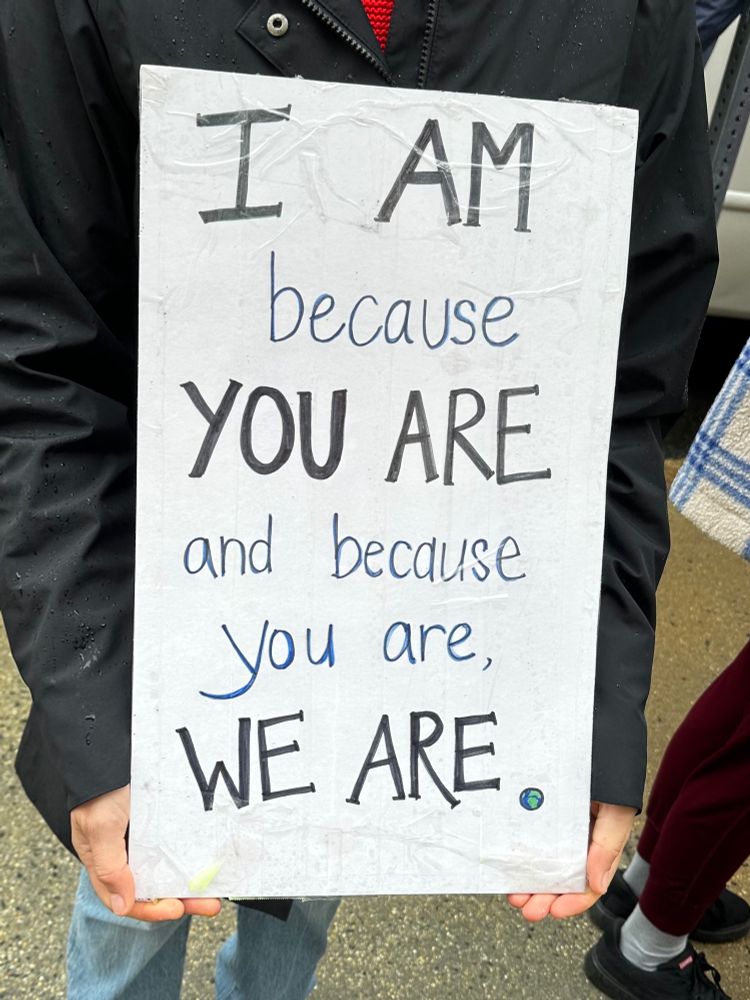 I AM
because
YOU ARE
and because
you are,
WE ARE.